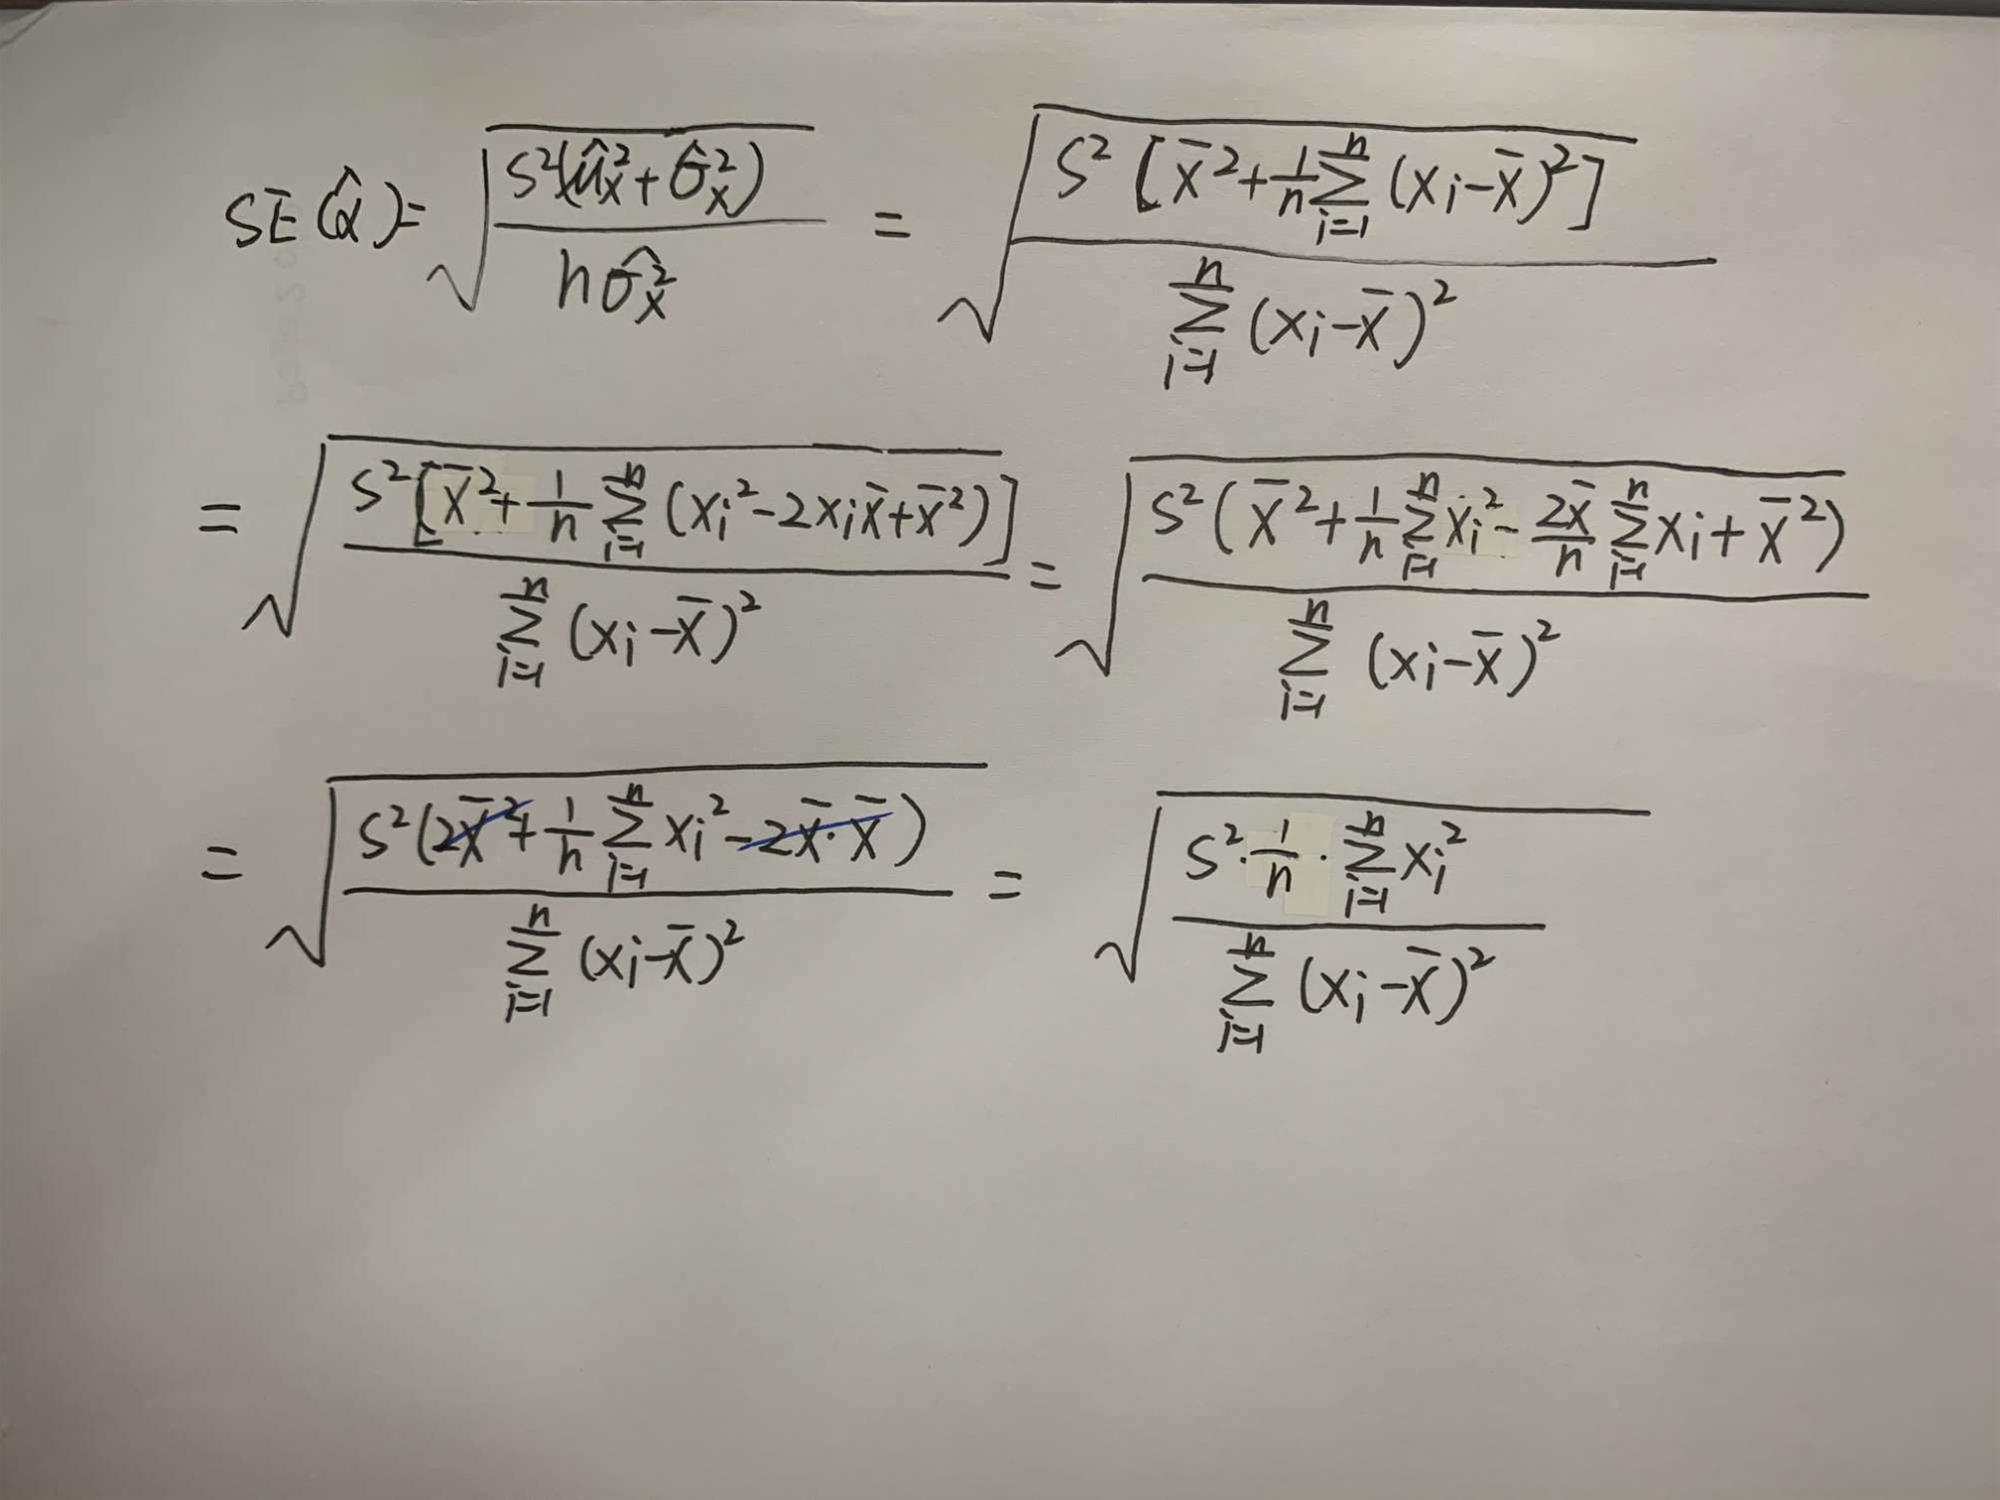 SE(α̂) = √(S²(μ̂ₓ² + σ̂ₓ²) / nσ̂ₓ²) = √(S²[x̄² + 1/n ∑ᵢ₌₁ⁿ (xᵢ − x̄)²] / ∑ᵢ₌₁ⁿ (xᵢ − x̄)²)
= √(S²[x̄² + 1/n ∑ᵢ₌₁ⁿ (xᵢ² − 2xᵢx̄ + x̄²)] / ∑ᵢ₌₁ⁿ (xᵢ − x̄)²) = √(S²(x̄² + 1/n ∑ᵢ₌₁ⁿ xᵢ² − 2x̄/n ∑ᵢ₌₁ⁿ xᵢ + x̄²) / ∑ᵢ₌₁ⁿ (xᵢ − x̄)²)
= √(S²(2x̄² + 1/n ∑ᵢ₌₁ⁿ xᵢ² − 2x̄·x̄) / ∑ᵢ₌₁ⁿ (xᵢ − x̄)²) = √(S²·1/n·∑ᵢ₌₁ⁿ xᵢ² / ∑ᵢ₌₁ⁿ (xᵢ − x̄)²)